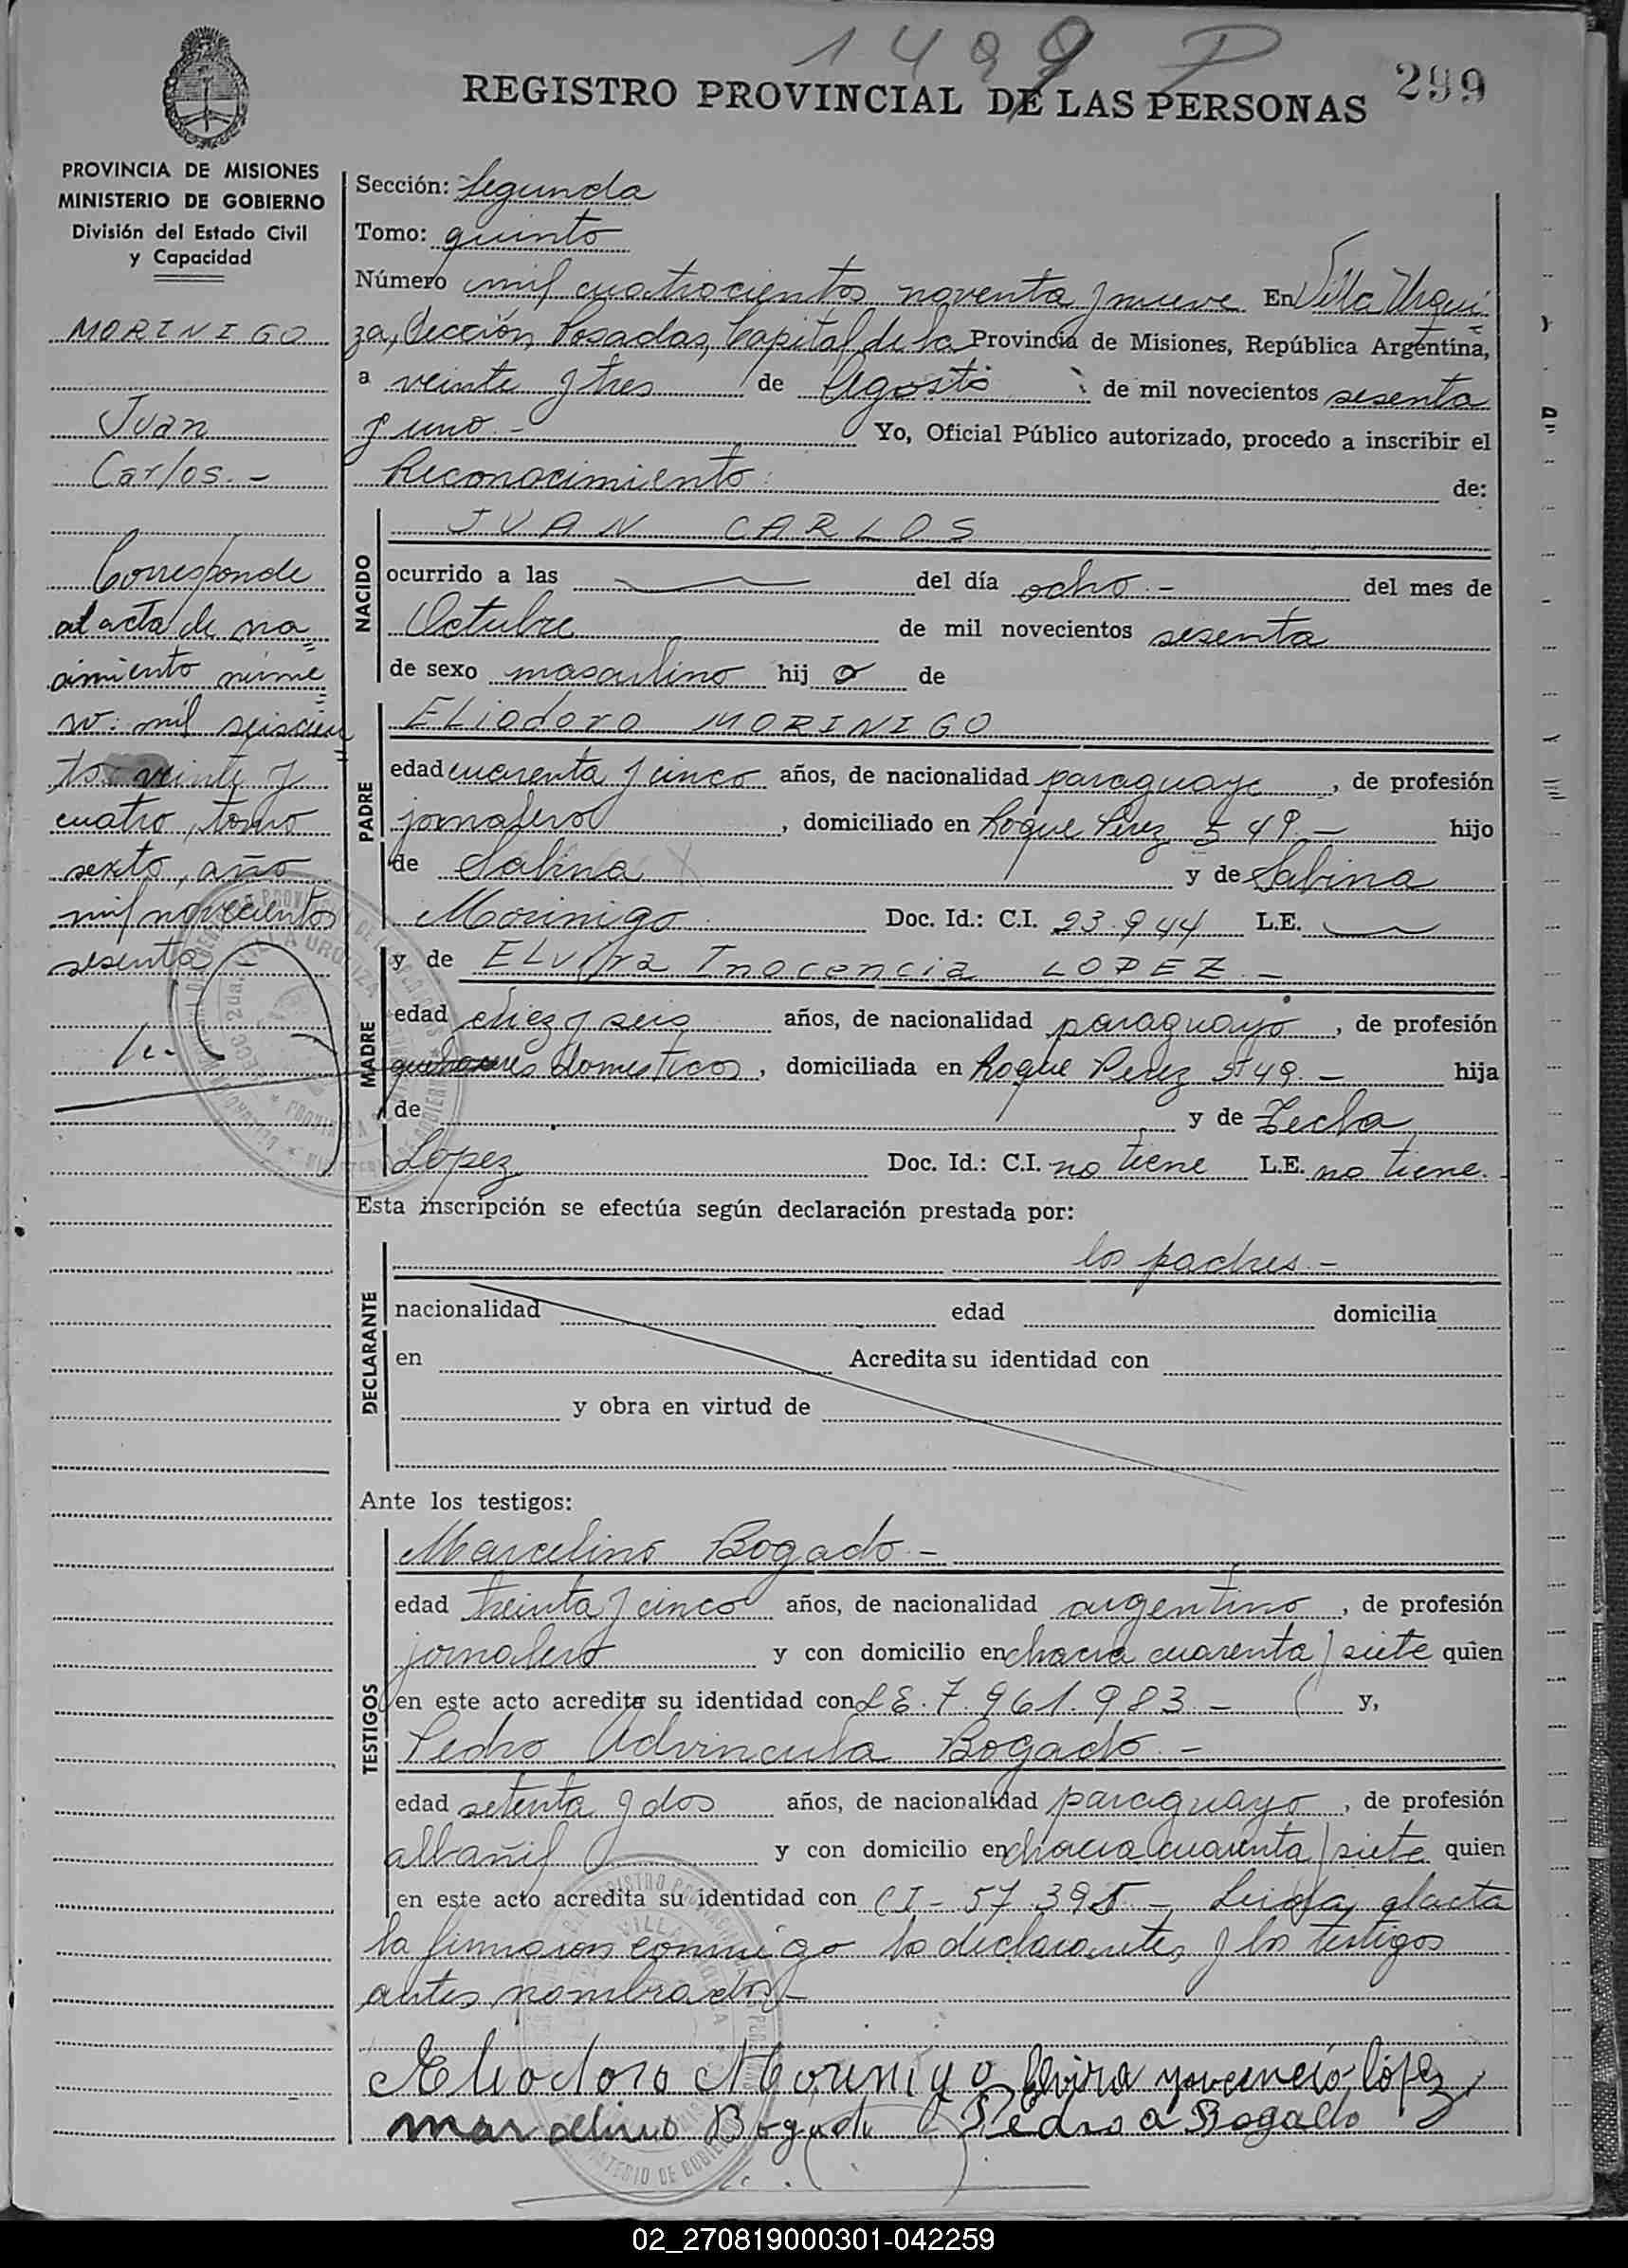 1499 P
REGISTRO PROVINCIAL DE LAS PERSONAS 299
PROVINCIA DE MISIONES
MINISTERIO DE GOBIERNO
División del Estado Civil
y Capacidad
MORINIGO
Juan
Carlos.-
Corresponde
al acta de na=
cimiento núme=
ro: mil seiscien=
tos veinte y
cuatro, tomo
sexto, año
mil novecientos
sesenta -
Sección: Segunda
Tomo: quinto
Número mil cuatrocientos noventa y nueve En Villa Urqui=
za, Sección, Posadas, Capital de la Provincia de Misiones, República Argentina,
a veinte y tres de Agosto de mil novecientos sesenta
y uno.- Yo, Oficial Público autorizado, procedo a inscribir el
Reconocimiento de:
NACIDO
JUAN CARLOS
ocurrido a las del día ocho.- del mes de
Octubre de mil novecientos sesenta
de sexo masculino hijo de
PADRE
ELiodoro MORINIGO
edad cuarenta y cinco años, de nacionalidad paraguaya, de profesión
jornalero, domiciliado en Roque Perez 549.- hijo
de Sabina y de Sabina
Morinigo Doc. Id.: C.I. 23.944 L.E.
MADRE
y de ELvira Inocencia LOPEZ.-
edad diez y seis años, de nacionalidad paraguayo, de profesión
quehaceres domesticos, domiciliada en Roque Perez 549.- hija
de y de Tecla
Lopez Doc. Id.: C.I. no tiene L.E. no tiene.
Esta inscripción se efectúa según declaración prestada por:
DECLARANTE
los padres.-
nacionalidad edad domicilia
en Acredita su identidad con
y obra en virtud de
Ante los testigos:
TESTIGOS
Marcelino Bogado.-
edad treinta y cinco años, de nacionalidad argentino, de profesión
jornalero y con domicilio en chacra cuarenta y siete quien
en este acto acredita su identidad con LE. 7.961.983 - y,
Pedro Advincula Bogado.-
edad setenta y dos años, de nacionalidad paraguayo, de profesión
albañil y con domicilio en chacra cuarenta y siete quien
en este acto acredita su identidad con CI - 57.395 - Leida el acta
la firmaron conmigo los declarantes y los testigos
antes nombrados-
Eliodoro Morinigo Elvira ynocencia lópez
marcelino Bogado Pedro a Bogado
02_270819000301-042259